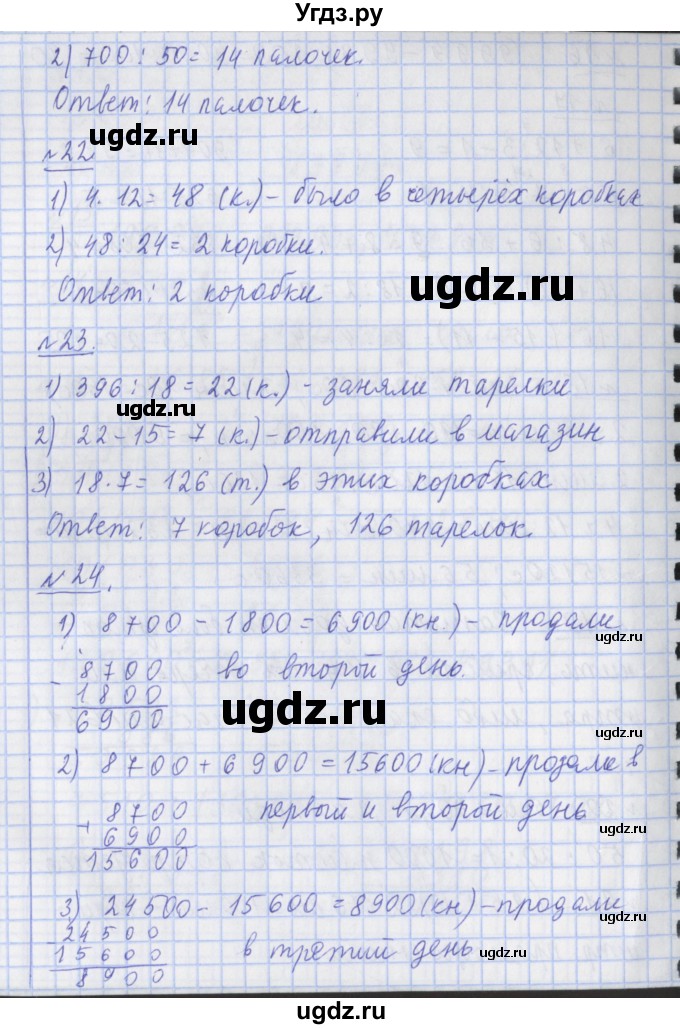 Угдз.ру
2) 700 : 50 = 14 палочек.
Ответ: 14 палочек.
ugdz.ru
№22
1) 4 · 12 = 48 (к.) – было в четырёх коробках
ugdz.ru
2) 48 : 24 = 2 коробки.
Ответ: 2 коробки
ugdz.ru
№23.
1) 396 : 18 = 22 (к.) – заняли тарелки
ugdz.ru
2) 22 – 15 = 7 (к.) – отправили в магазин
3) 18 · 7 = 126 (т.) в этих коробках
Ответ: 7 коробок, 126 тарелок.
ugdz.ru
№24.
1) 8700 – 1800 = 6900 (кн.) – продали
ugdz.ru
- 8700 во второй день.
1800
6900
ugdz.ru
2) 8700 + 6900 = 15600 (кн) – прозали в
8700 первый и второй день
+ 6900
ugdz.ru
15600
3) 24500 – 15600 = 8900 (кн) – продали
ugdz.ru
- 24500
15600 в третий день
8900
ugdz.ru
ugdz.ru